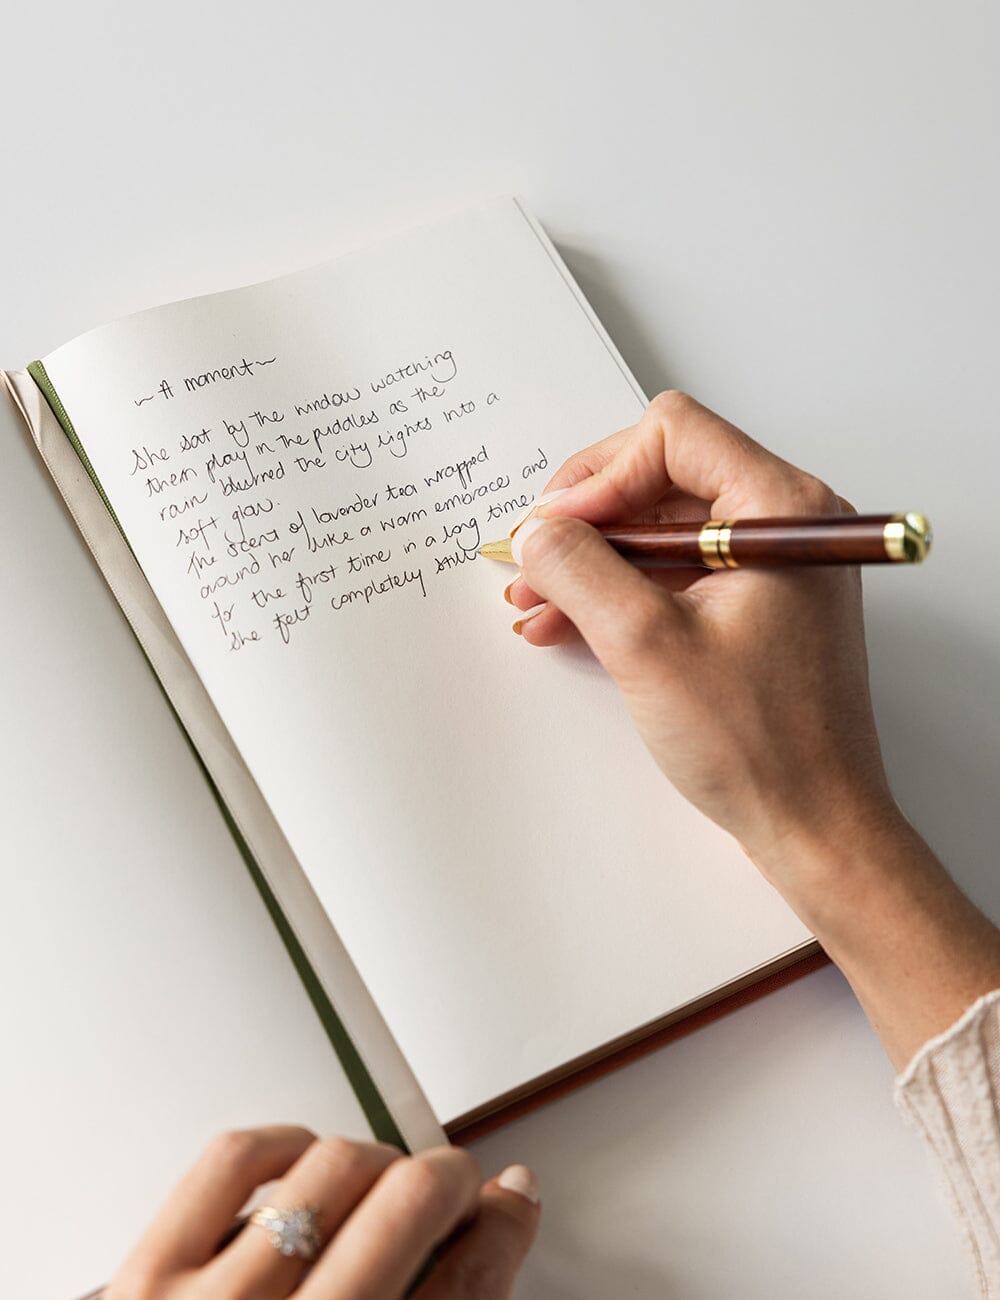 ~ A moment ~
She sat by the window watching
them play in the puddles as the
rain blurred the city lights into a
soft glow.
The scent of lavender tea wrapped
around her like a warm embrace and
for the first time in a long time
she felt completely still